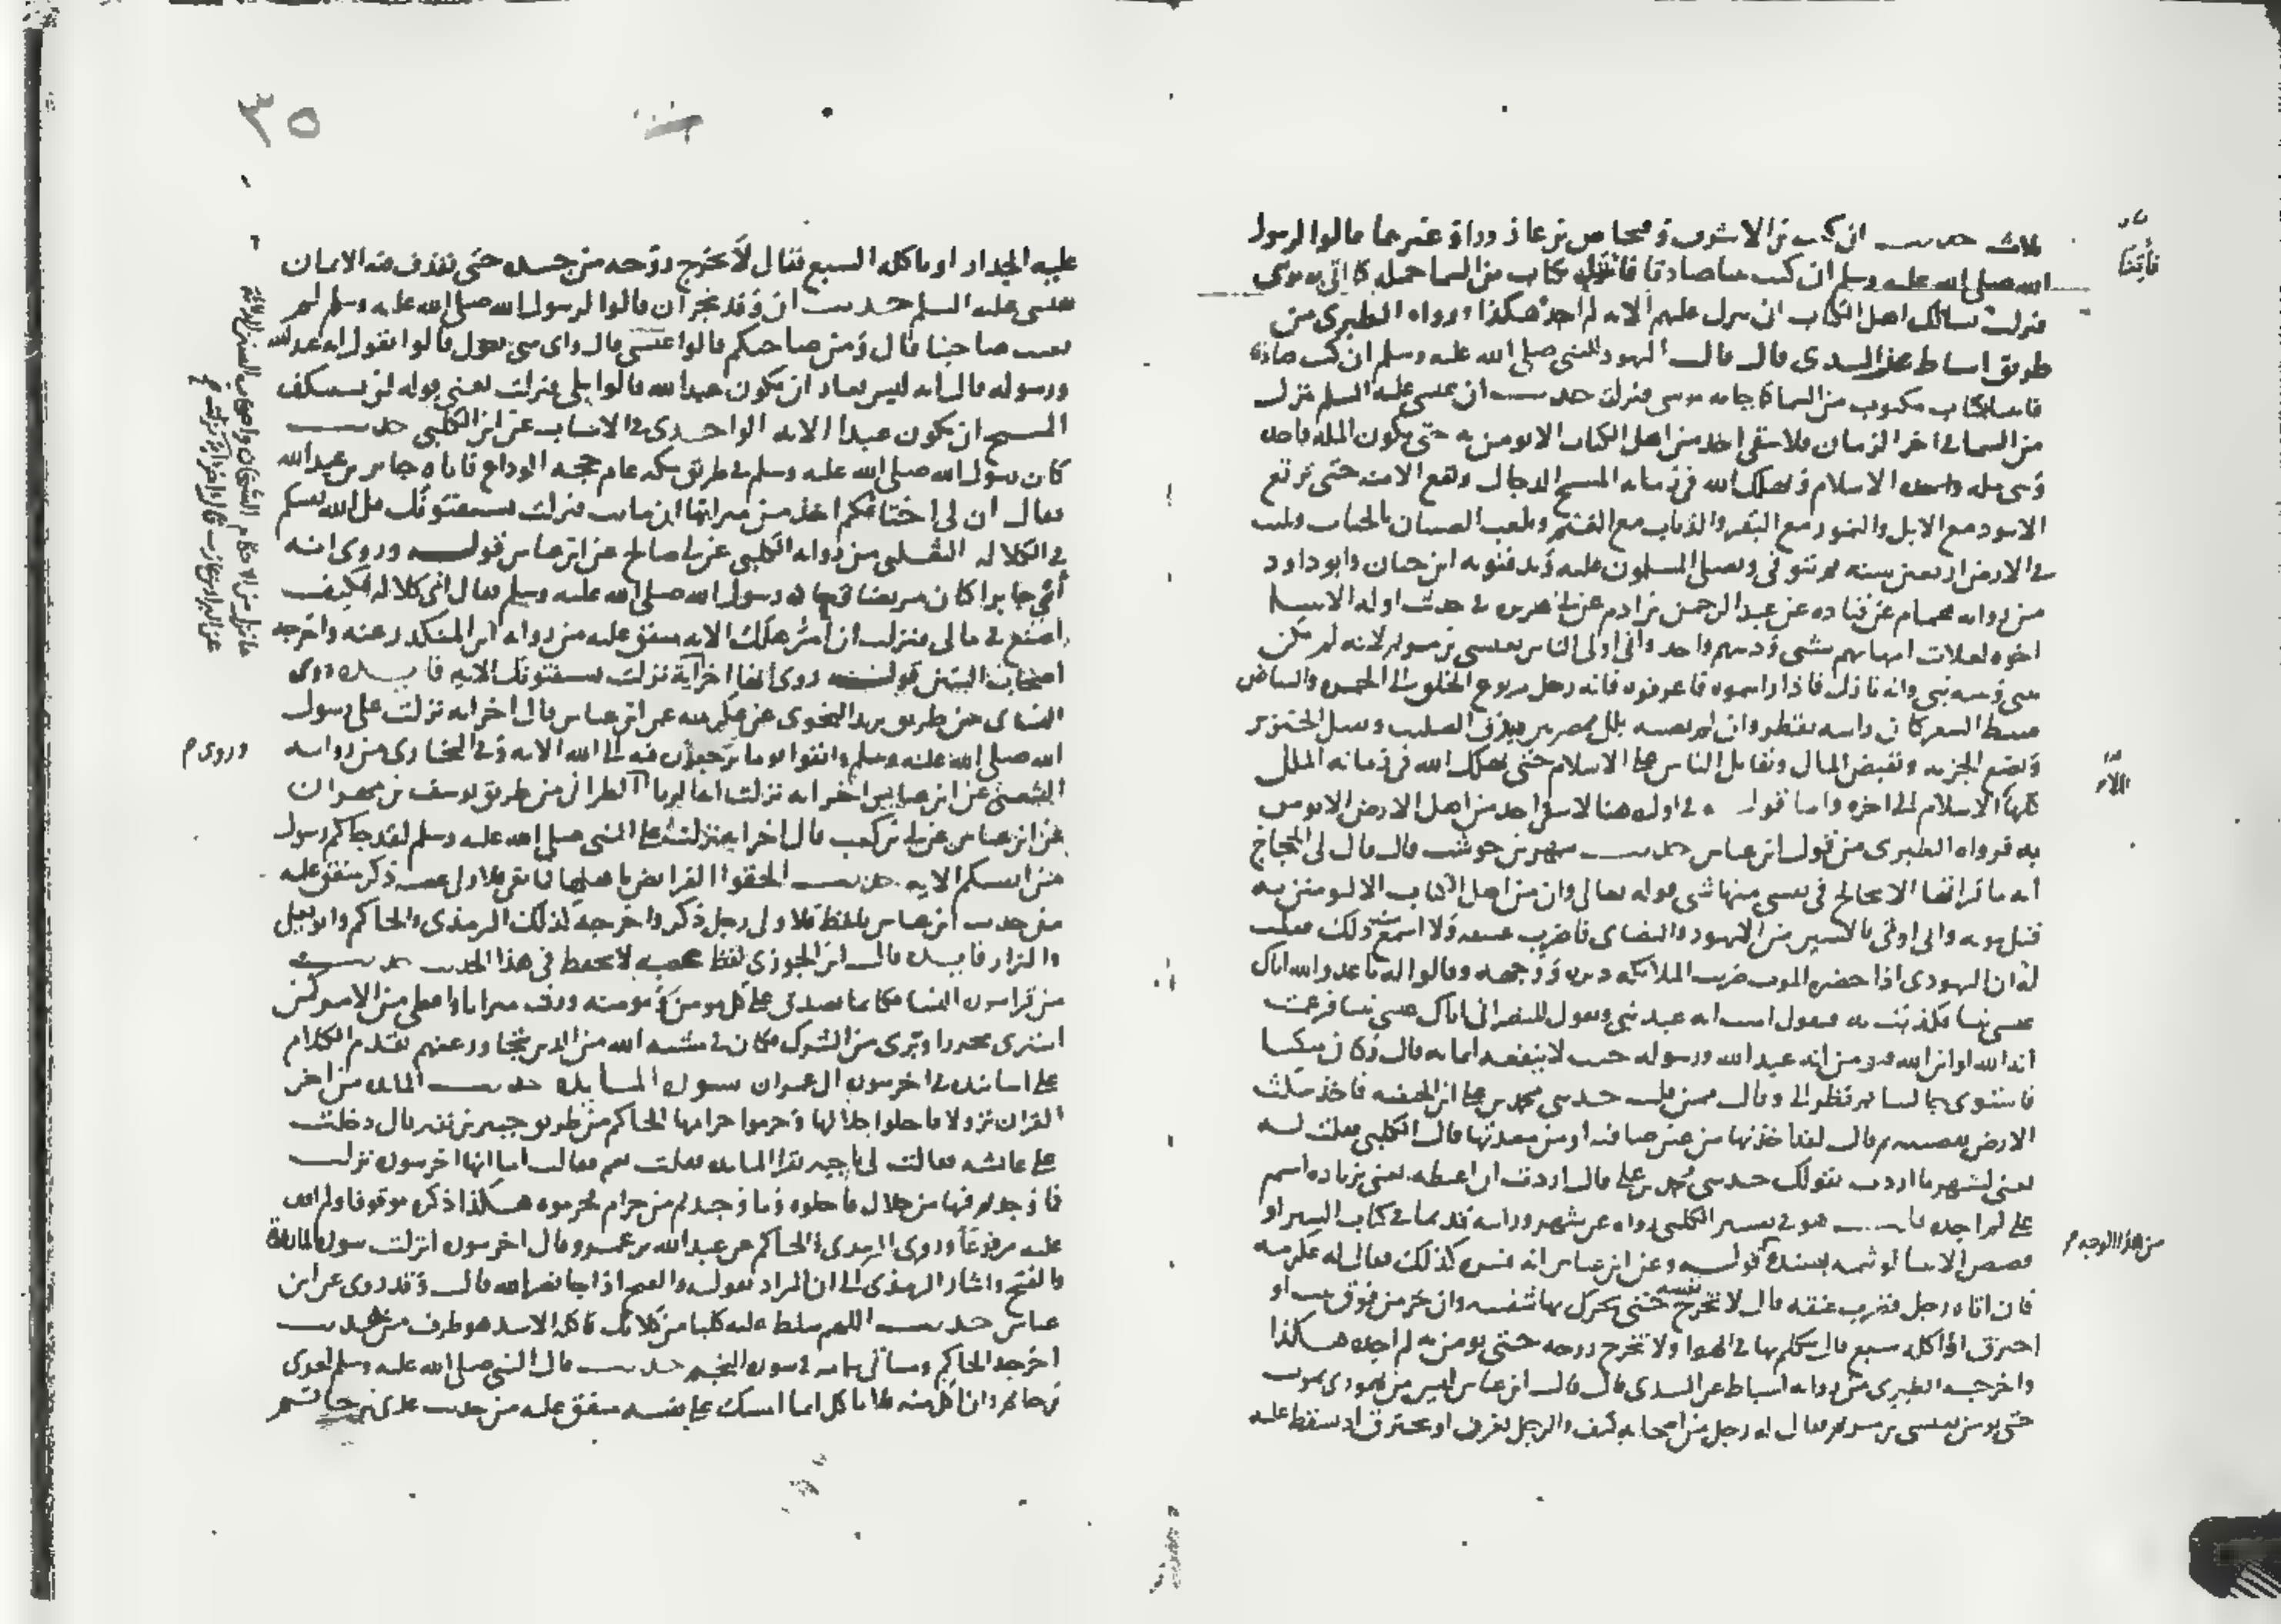 ثلاث حديث ان كعب بن الاشرف وفنحاص بن عازوراء وغيرهما قالوا لرسول
الله صلى الله عليه وسلم ان كنت نبيا صادقا فأتنا بكتاب من السما جملة كما اتى به موسى
فنزلت يسالك اهل الكتاب ان تنزل عليهم الاية لم اجده هكذا ورواه الطبري من
طريق اسباط عن السدي قال قال اليهود للنبي صلى الله عليه وسلم ان كنت صادقا
فاتنا بكتاب مكتوب من السما كما جا به موسى فنزلت حديث ان عيسى عليه السلم ينزل
من السما في اخر الزمان فلا يبقى احد من اهل الكتاب الا يومن به حتى يكون المله واحده
وهي مله الاسلام ويهلك الله في زمانه المسيح الدجال وتقع الامنه حتى ترتع
الاسود مع الابل والنمور مع البقر والذياب مع الغنم ويلعب الصبيان بالحيات ويلبث
في الارض اربعين سنه ثم يتوفى ويصلي المسلمون عليه ويدفنونه ابن حبان وابو داود
من روايه همام عن قتاده عن عبد الرحمن بن ادم عن ابي هريره في حديث اوله الانبيا
اخوه لعلات امهاتهم شتى ودينهم واحد واني اولى الناس بعيسى بن مريم لانه لم يكن
بيني وبينه نبي وانه نازل فاذا رايتموه فاعرفوه فانه رجل مربوع الخلق الى الحمره والبياض
سبط الشعر كان راسه يقطر وان لم يصبه بلل بين ممصرتين فيدق الصليب ويقتل الخنزير
ويضع الجزيه ويفيض المال ويقاتل الناس على الاسلام حتى يهلك الله في زمانه الملل
كلها الا الاسلام الى اخره واما قوله في اوله هنا لا يبقى احد من اهل الارض الا يومن
به فرواه الطبري من قول ابن عباس حديث شهر بن حوشب قال قال لي الحجاج
ايه ما قراتها الا تخالج في نفسي منها شي قوله تعالى وان من اهل الكتاب الا ليومنن به
قبل موته واني اوتى بالاسير من اليهود والنصارى فاضرب عنقه ولا اسمع منه ذلك فقلت
له ان اليهودي اذا حضره الموت ضربت الملايكه دبره ووجهه وقالوا له يا عدو الله اتاك
عيسى نبيا فكذبت به فيقول امنت انه عبد نبي ويقول للنصراني اتاك عيسى نبيا فزعمت
انه الله او ابن الله فيومن انه عبد الله ورسوله حيث لا ينفعه ايمانه قال وكان متكيا
فاستوى جالسا ثم نظر الي وقال ممن قلت حدثني محمد بن علي ابن الحنفيه فاخذ ينكت
الارض بقضيبه ثم قال لقد اخذتها من عين صافيه او من معدنها قال الكلبي فقلت له
يعني لشهر ما اردت بقولك حدثني محمد بن علي قال اردت ان اغيظه يعني بزياده اسم
علي لم اجده قلت هو في تفسير الكلبي رواه عن شهر ورايته قديما في كتاب السير او
قصص الانبيا لوثيمه بسنده قوله وعن ابن عباس انه فسره كذلك فقال له عكرمه
فان اتاه رجل فضرب عنقه قال لا تخرج نفسه حتى يحرك بها شفتيه وان خر من فوق بيت او
احترق او اكله سبع قال يتكلم بها في الهوا ولا تخرج روحه حتى يومن به لم اجده هكذا
واخرجه الطبري من روايه اسباط عن السدي قال قال ابن عباس ليس من يهودي يموت
حتى يومن بعيسى بن مريم فقال له رجل من اصحابه كيف والرجل يغرق او يحترق او يسقط عليه
من هذا الوجه
٣٥
عليه الجدار او ياكله السبع فقال لا تخرج روحه من جسده حتى يقذف فيه الايمان
بعيسى عليه السلم حديث ان وفد نجران قالوا لرسول الله صلى الله عليه وسلم لم
تعيب صاحبنا قال ومن صاحبكم قالوا عيسى قال واي شي اقول قالوا تقول انه عبد الله
ورسوله قال انه ليس بعار ان يكون عبدا لله قالوا بلى فنزلت يعني قوله لن يستنكف
المسيح ان يكون عبدا الاية الواحدي في الاسباب عن ابن الكلبي حديث
كان رسول الله صلى الله عليه وسلم في طريق مكه عام حجه الوداع فاتاه جابر بن عبد الله
فقال ان لي اختا فكم اخذ من ميراثها ان ماتت فنزلت يستفتونك قل الله يفتيكم
في الكلاله الثعلبي من روايه الكلبي عن ابي صالح عن ابن عباس قوله وروى انه
أتى جابرا كان مريضا فعاده رسول الله صلى الله عليه وسلم فقال اني كلاله فكيف
اصنع في مالي فنزلت ان امرؤ هلك الاية متفق عليه من روايه ابن المنكدر عنه واخرجه
اصحاب السنن قوله روى انها اخر آية نزلت يستفتونك الاية فايده روى
النساى من طريق يزيد النحوي عن عكرمه عن ابن عباس قال اخر ايه نزلت على رسول
الله صلى الله عليه وسلم واتقوا يوما ترجعون فيه الى الله الاية وفي البخاري من روايه
الشعبي عن ابن عباس اخر ايه نزلت ايه الربا الطبراني من طريق يوسف بن مهران
عن ابن عباس عن ابي بن كعب قال اخر ايه نزلت على النبي صلى الله عليه وسلم لقد جاكم رسول
من انفسكم الاية حديث الحقوا الفرائض باهلها فما بقي فلاولى عصبه ذكر متفق عليه
من حديث ابن عباس بلفظ فلاولى رجل ذكر واخرجه كذلك الترمذي والحاكم وابو يعلى
والبزار فايده قال ابن الجوزي لفظ عصبه لا تحفظ في هذا الحديث حديث
من قرا سوره النسا فكانما تصدق على كل مومن ومومنه ورث ميراثا واعطي من الاجر كمن
اشترى محررا وبري من الشرك وكان في مشيه الله من الذين يتجاوز عنهم تقدم الكلام
على اسانيده في اخر سوره ال عمران سوره المايده حديث المايده من اخر
القران نزولا فاحلوا حلالها وحرموا حرامها الحاكم من طريق جبير بن نفير قال دخلت
على عايشه فقالت لي يا جبير تقرا المايده فقلت نعم فقالت اما انها اخر سوره نزلت
فما وجدتم فيها من حلال فاحلوه وما وجدتم من حرام فحرموه هكذا ذكره موقوفا ولم اقف
عليه مرفوعا وروى الترمذي والحاكم عن عبد الله بن عمرو قال اخر سوره انزلت سوره المايده
والفتح واشار الترمذي الى ان المراد بقوله والفتح اذا جا نصر الله قال وقد روى عن ابن
عباس حديث اللهم سلط عليه كلبا من كلابك فاكله الاسد هو طرف من حديث
اخرجه الحاكم وسياتي بتمامه في سوره النجم حديث قال النبي صلى الله عليه وسلم لعدي
بن حاتم وان اكل منه فلا تاكل انما امسك على نفسه متفق عليه من حديث عدي بن حاتم
وروى م
ما نزل من الاحكام الشيخان واصحاب السنن الثلاثة
عن البراء بن عازب قال اخر آية نزلت